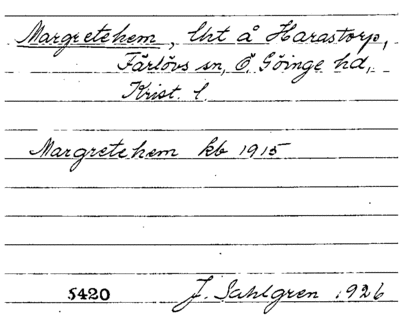 Margretehem, lht å Harastorp,
Färlövs sn, Ö. Göinge hd,
Krist. l.
Margretehem kb 1915
5420 J. Sahlgren 1926